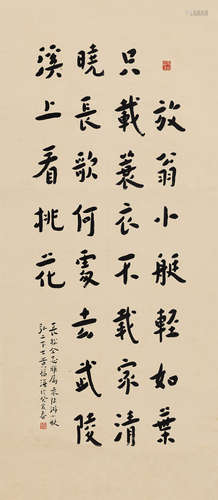 放翁小艇輕如葉
只載蓑衣不載家清
曉長歌何處去武陵
溪上看桃花
雅屬
黃福海